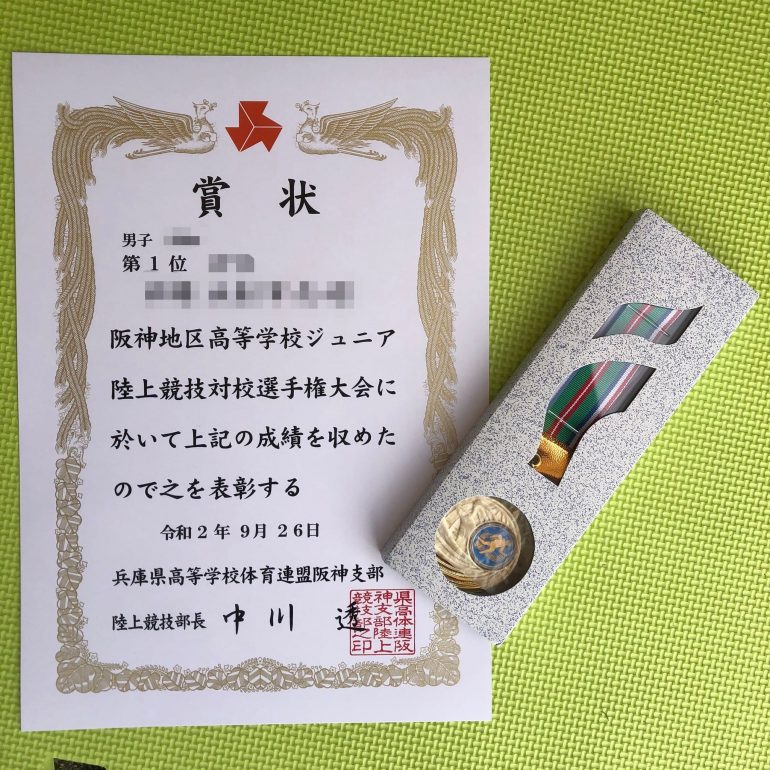 賞状
男子
第１位
阪神地区高等学校ジュニア
陸上競技対校選手権大会に
於いて上記の成績を収めた
ので之を表彰する
令和２年 ９月 ２６日
兵庫県高等学校体育連盟阪神支部
陸上競技部長 中川 透
県高体連阪
神支部陸上
競技部之印